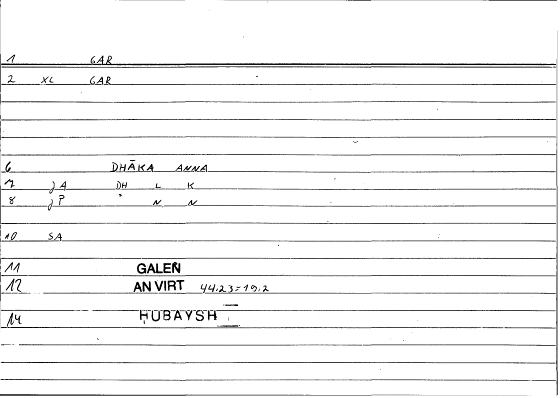 1 GAR
2 XL GAR
6 DHĀKA ANNA
7 JA DH L K
8 JP " N N
10 SA
11 GALEN
12 AN VIRT 44.23=19.2
14 ḤUBAYSH